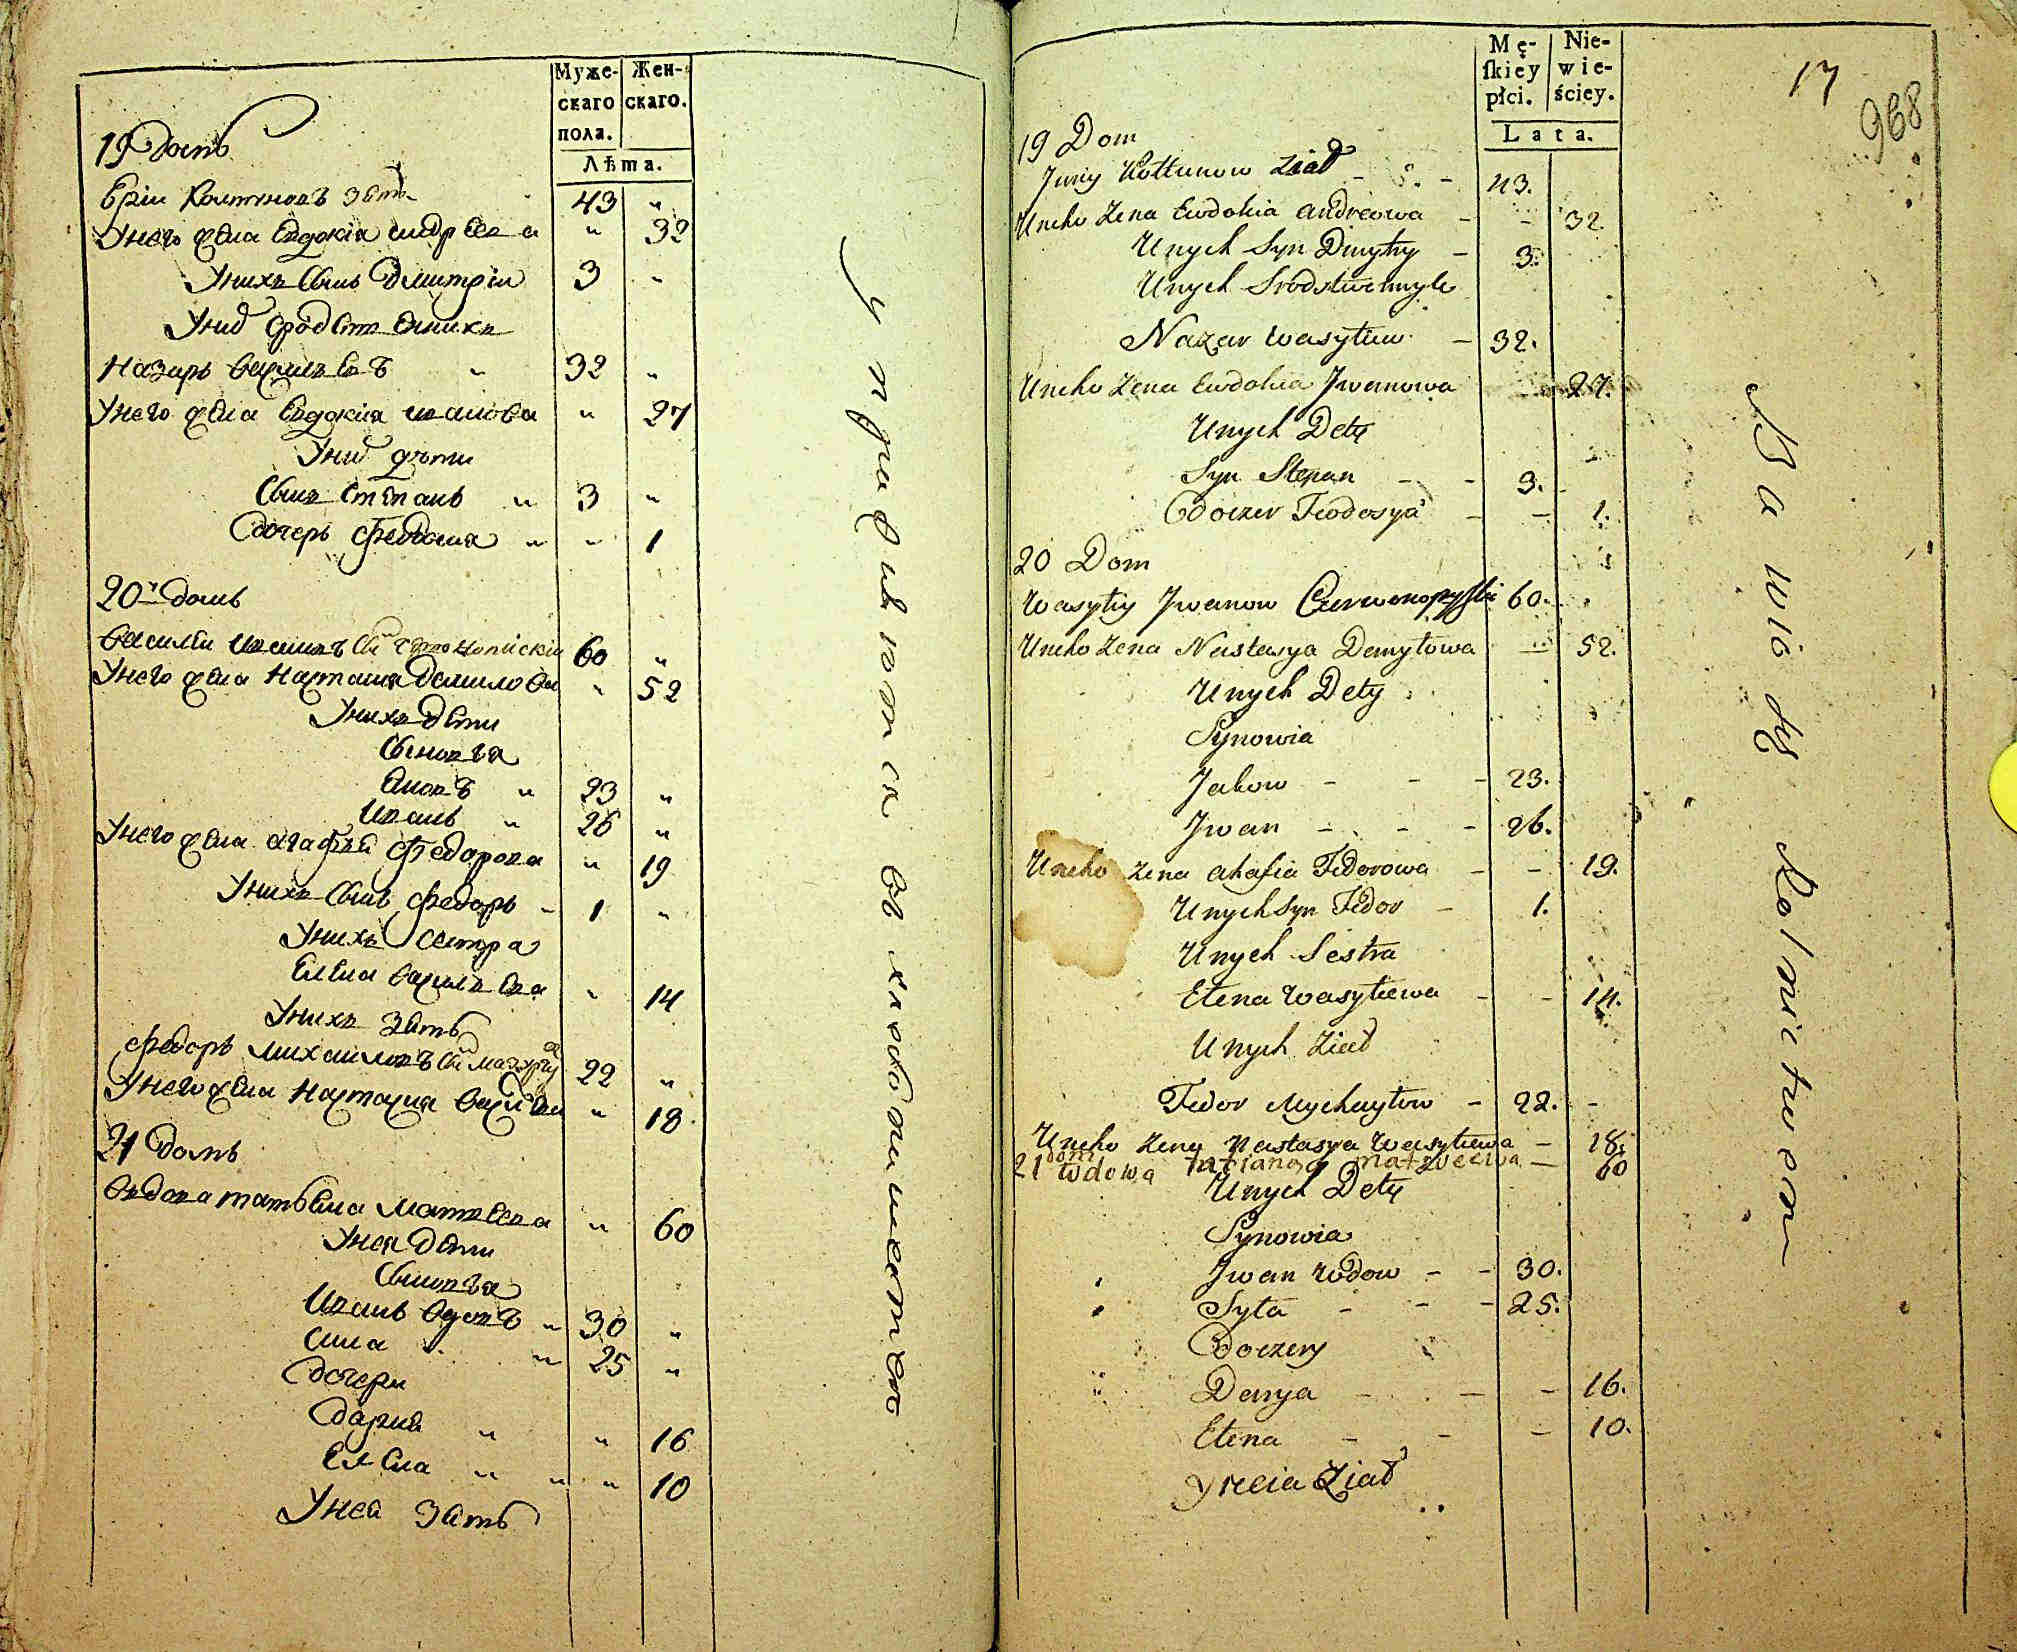 Муже-
скаго
пола.
Жен-
скаго.
Лѣта.
19 домъ
Юрiи Колтуновъ зять 43 "
У него жена Евдокiя андреева " 32
У нихъ сынъ Дмитрiи 3 "
У ниxъ сродственики
Назаръ василевъ " 32 "
У него жена Евдокiя иванова " 27
У ниxъ дѣти
Сынъ Степанъ " 3 "
Дочерь Федосия " " 1
20й домъ
василеи ивановъ 60 "
У него жена Настасия Данилова " 52
У нихъ дети
Сыновья
Яковъ " 23 "
Иванъ " 26 "
У него жена агафия Федорова " 19
У нихъ сынъ Федоръ - 1 "
У нихъ Сестра
Елена василева " 14
У нихъ зять
Федоръ михаиловъ 22 "
У него жена Настасия васильева " 18
21 домъ
вдова татьяна матвеева " 60
У нея дети
Сыновья
Иванъ вдовъ " 30 "
Сила " 25 "
Дочери
Дария " " 16
Елена " " " 10
У неи зять
упражняются въ хлебопашестве
Mę-
ſkiey
płci.
Nie-
wie-
ściey.
Lata.
17
968
19 Dom
Juriy Kołtunow Ziat - - 43.
Uneho Zena Ewdokia andreowa - - 32
Unych Syn Dmytry - 3.
Unych Srodstwennyk
Nazar Wasylew - 32.
Uneho Zena Ewdokia Jwanowa 27.
Unych Dety
Syn Stepan - - 3.
Doczer Feodosya - - 1.
20 Dom
Wasyliy Jwanow Czerwonopyſki 60.
Uneho Zena Nastasya Danyłowa - 52.
Unych Dety
Synowia
Jakow - - - 23.
Jwan - - - 26.
Uneho Zena ahafia Fedorowa - - 19.
Unych Syn Fedor - 1.
Unych Sestra
Elena Wasylewa - - 14.
Unych Ziat
Fedor Mychayłow - 22. -
Uneho Zena Nastasya Wasylewa - 18.
21 dom
wdowa tatiana matweewa - 60
Unych Dety
Synowia
Jwan wdow - - 30.
Syła - - - 25.
Doczery
Darya - - - 16.
Elena - - - 10.
Uneia Ziat
Bawią się Rolnictwem